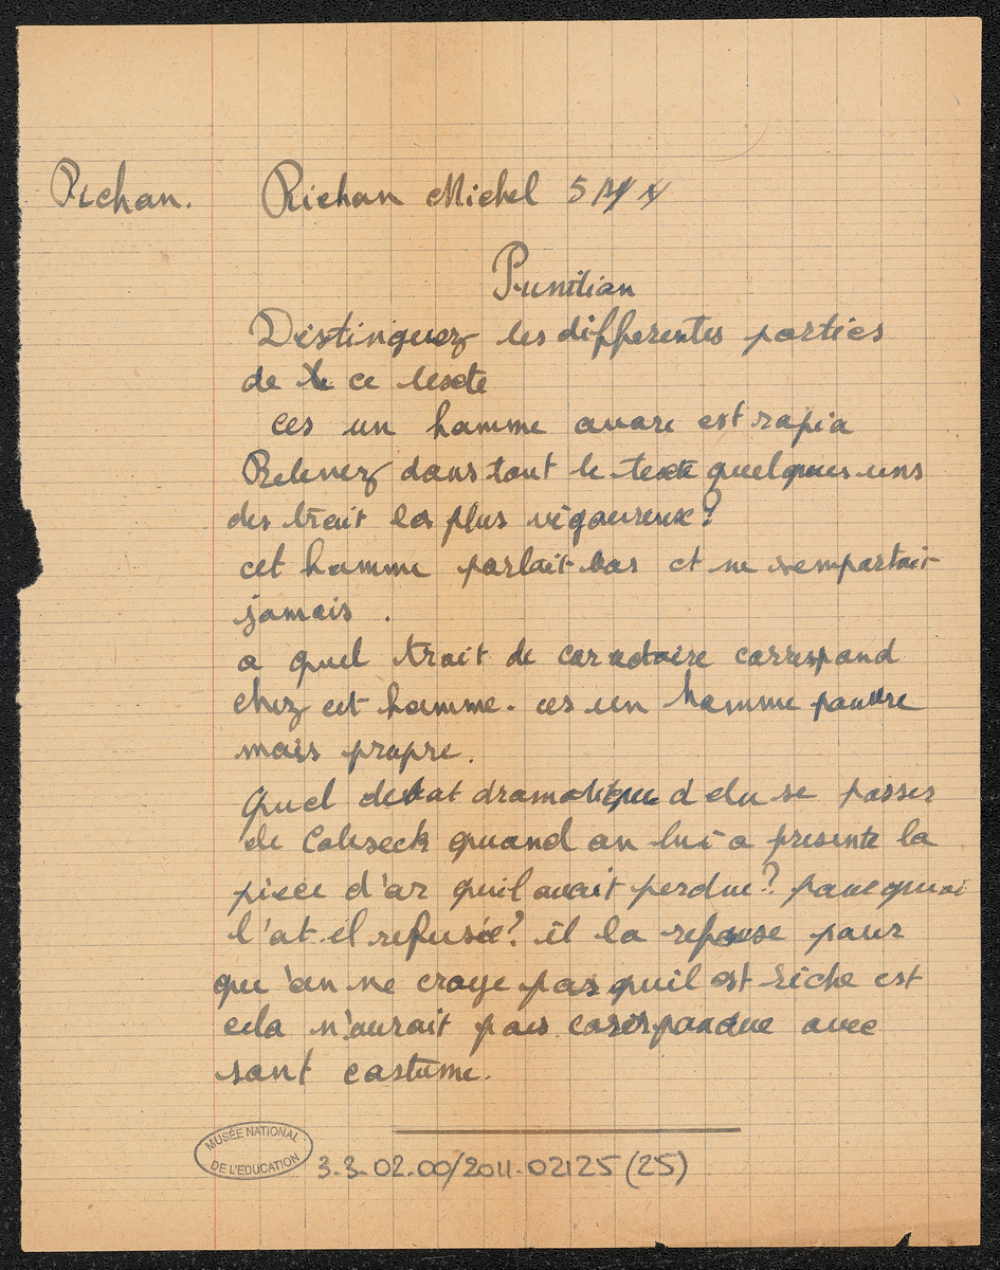 Richan. Richan Michel 5
Punition
Distinguez les differentes parties
de ce texte
ces un homme avare est rapia
Relevez dans tout le texte quelques uns
des trait les plus vigoureux?
cet homme parlait bas et ne s'emportait
jamais.
a quel trait de caractaire correspond
chez cet homme. ces un homme pauvre
mais propre.
Quel debat dramatique d elu se passer
de Cobseck quand on lui a presente la
piece d'or quil avait perdue? pourquoi
l'at il refusée? il la repouse pour
qu'on ne croye pas quil est riche est
cela n'aurait pas corespondue avec
sont costume.
MUSÉE NATIONAL
DE L'EDUCATION
3.3.02.00/2011.02125(25)